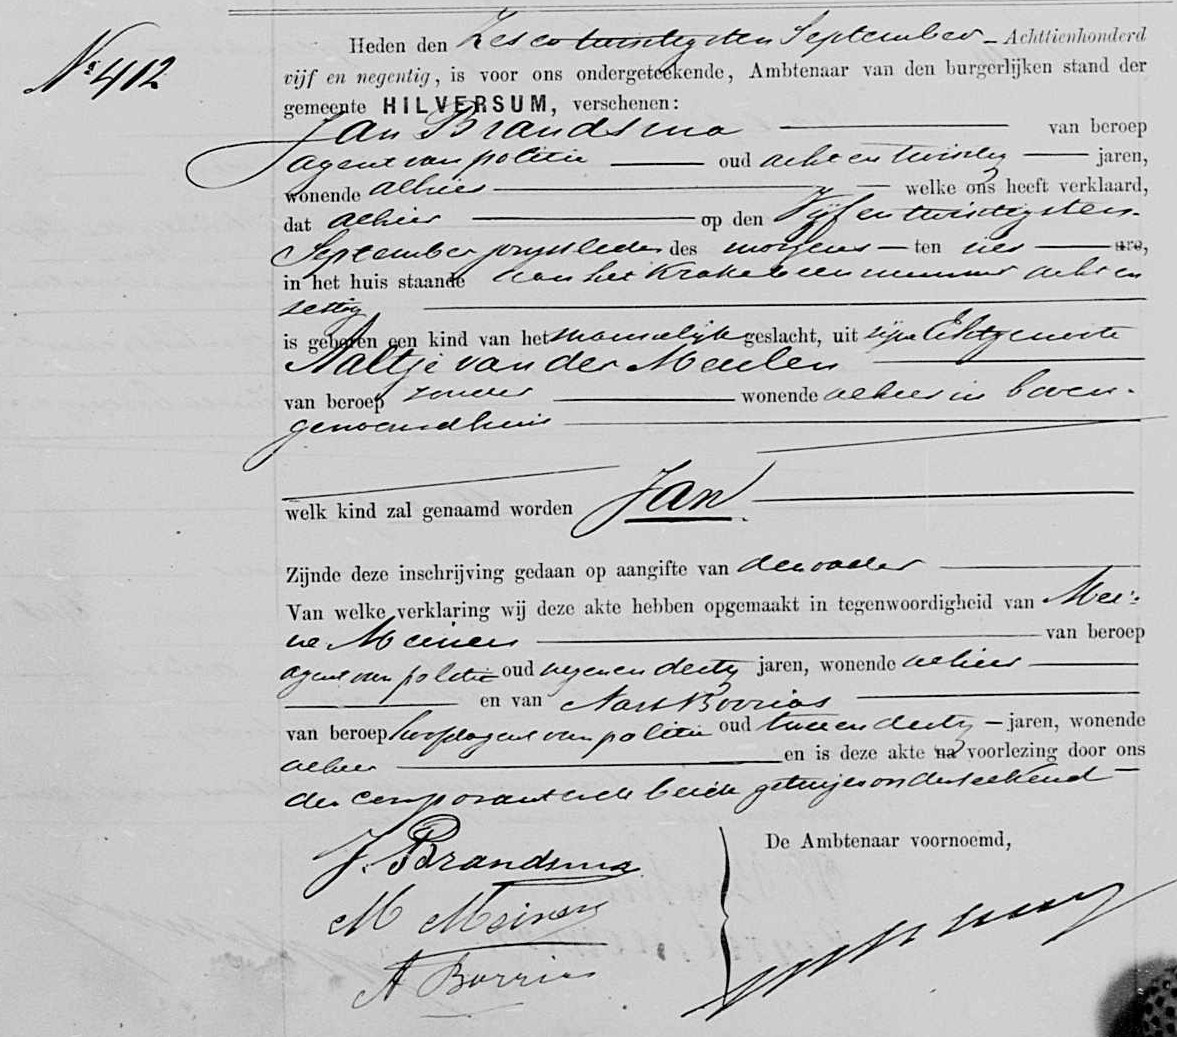 Nº 412
Heden den Zesentwintigsten September Achttienhonderd
vijf en negentig, is voor ons ondergeteekende, Ambtenaar van den burgerlijken stand der
gemeente HILVERSUM, verschenen:
Jan Brandsma van beroep
agent van politie oud acht en twintig jaren,
wonende alhier welke ons heeft verklaard,
dat alhier op den Vijf en twintigsten
September jongstleden des morgens ten ure,
in het huis staande aan het nummer acht en
zestig
is geboren een kind van het mannelijk geslacht, uit zijne Echtgenoote
Aaltje van der Meulen
van beroep zonder wonende alhier in boven-
genoemd huis
welk kind zal genaamd worden Jan
Zijnde deze inschrijving gedaan op aangifte van den vader
Van welke verklaring wij deze akte hebben opgemaakt in tegenwoordigheid van Mei-
ne Meiners van beroep
agent van politie oud negen en dertig jaren, wonende alhier
en van Aart Borrias
van beroep hoofdagent van politie oud twee en dertig jaren, wonende
alhier en is deze akte na voorlezing door ons
den comparant en de beide getuigen onderteekend
J. Brandsma
De Ambtenaar voornoemd,
M Meiners
A Borrias